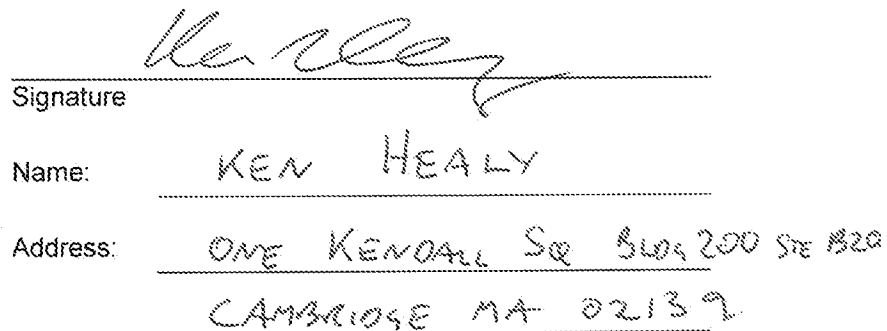 Signature
Name: KEN HEALY
Address: ONE KENDALL SQ BLDG 200 STE
CAMBRIDGE MA 02139